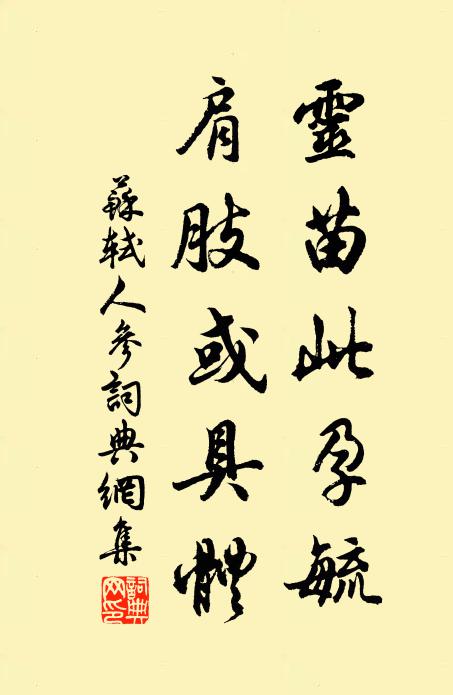 靈苗此孕毓
肩肢或具體
蘇軾人參詞典網集
詞典網印